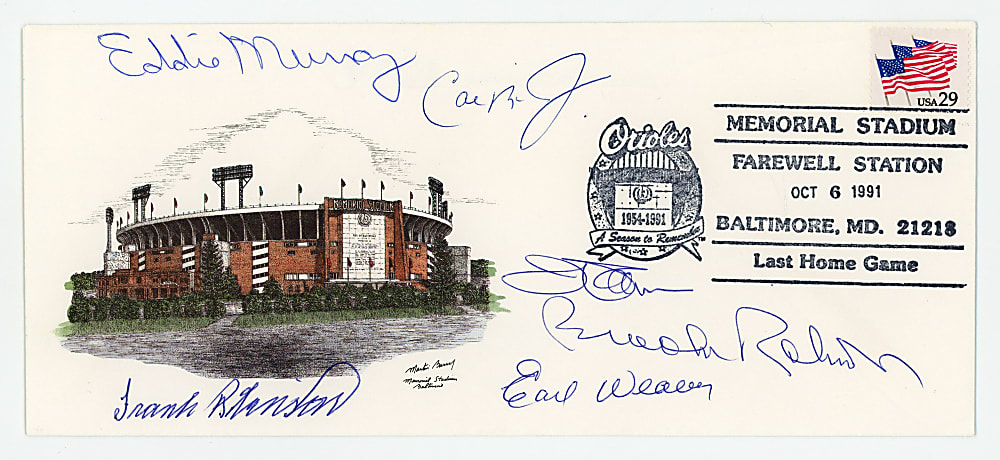 Eddie Murray
Cal Rip Jr.
USA 29
MEMORIAL STADIUM
FAREWELL STATION
OCT 6 1991
BALTIMORE, MD. 21218
Last Home Game
Orioles
1954-1991
A Season to Remember
TM
MEMORIAL STADIUM
Brooks Robinson
Earl Weaver
Frank Robinson
Martin Barry
Memorial Stadium
Baltimore